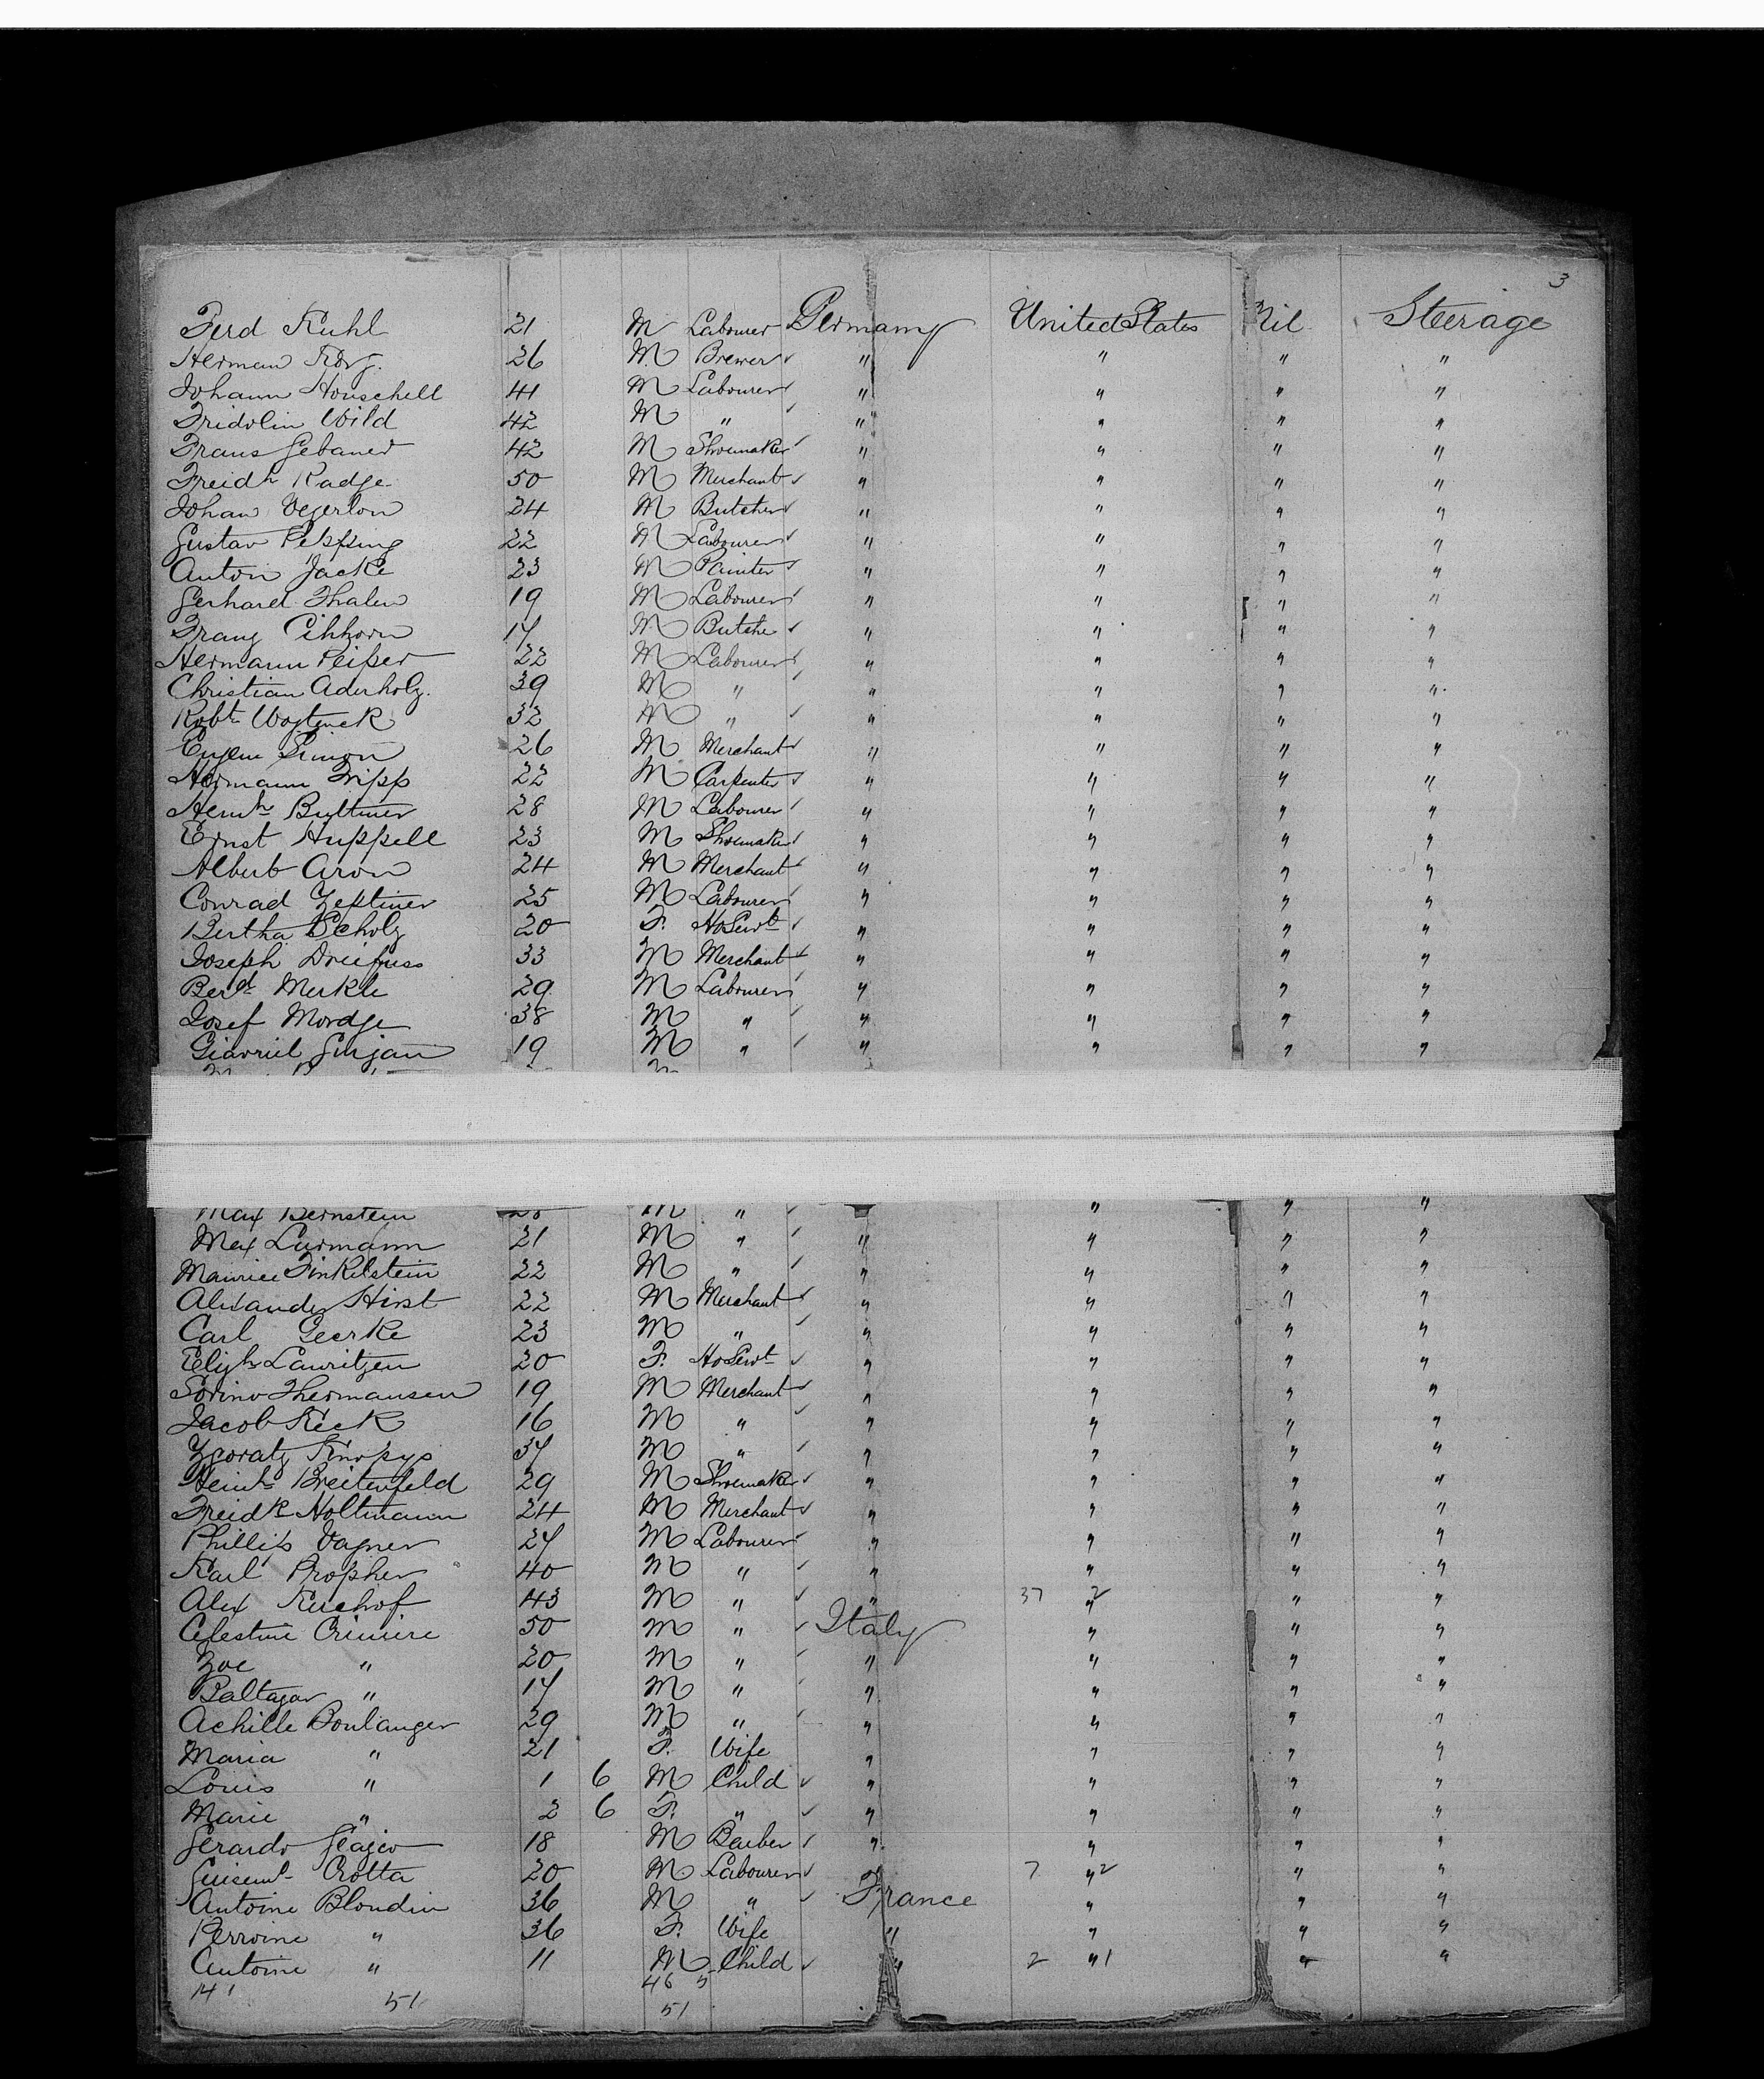 3
Ferd Kuhl 21 M Labourer Germany United States Nil Steerage
Herman 26 M Brewer " " " "
Johann Houschell 41 M Labourer " " " "
Fridolin Wild 42 M " " " " "
Frans Gebauer 42 M Shoemaker " " " "
Freidh Radge 50 M Merchant " " " "
Johan Vegerlon 24 M Butcher " " " "
Gustav 22 M Labourer " " " "
Anton Jacke 23 M Painter " " " "
Gerhard Thalen 19 M Labourer " " " "
Franz Eihhorn 17 M Butche " " " "
Hermann Peißer 22 M Labourer " " " "
Christian Aderholz. 39 M " " " " "
Robt 32 M " " " " "
Eugen Simon 26 M Merchant " " " "
Hermann Tripp 22 M Carpenter " " " "
Heinh Bultmer 28 M Labourer " " " "
Ernst Huppell 23 M Shoemaker " " " "
Albert Aron 24 M Merchant " " " "
Conrad 25 M Labourer " " " "
Bertha Scholz 20 F. HoServt " " " "
Joseph Dreifuss 33 M Merchant " " " "
Berd Merkle 29 M Labourer " " " "
Josef Mordze 38 M " " " " "
Giavriel Gurjan 19 M " " " " "
Max Bernstein 28 M " " " "
Max Lurmann 21 M " " " " "
Maurice Finkelstein 22 M " " " " "
Alexander Hirst 22 M Merchant " " " "
Carl Geerke 23 M " " " " "
Elizh Lauritzen 20 F. HoServt " " " "
Sorino Thermansen 19 M Merchant " " " "
Jacob Keck 16 M " " " " "
37 M " " " " "
Heinh Breitenfeld 29 M Shoemaker " " " "
Freidk Holtmann 24 M Merchant " " " "
Phillip Vagner 27 M Labourer " " " "
Karl Propher 40 M " " " " "
Alex Kirchof 43 M " " 37 " 2 " "
Celestine Crimire 50 M " Italy " " "
Zoe " 20 M " " " " "
Baltazar " 17 M " " " " "
Achille Boulanger 29 M " " " " "
Maria " 21 F. Wife " " " "
Louis " 1 6 M Child " " " "
Marie " 2 6 F. " " " " "
Gerardo 18 M Barber " " " "
Crotta 20 M Labourer 7 " 2 " "
Antoine Blondin 36 M " France " " "
Perroine " 36 F. Wife " " " "
Antoine " 11 M Child " 2 " 1 " "
14 1 46 5
51 51